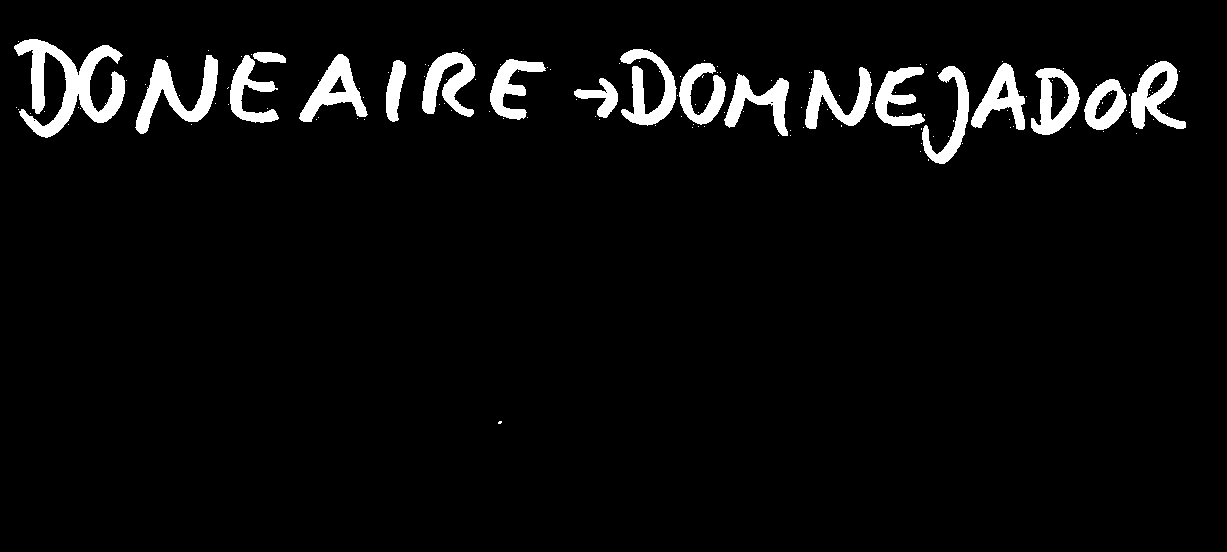 DONEAIRE → DOMNEJADOR